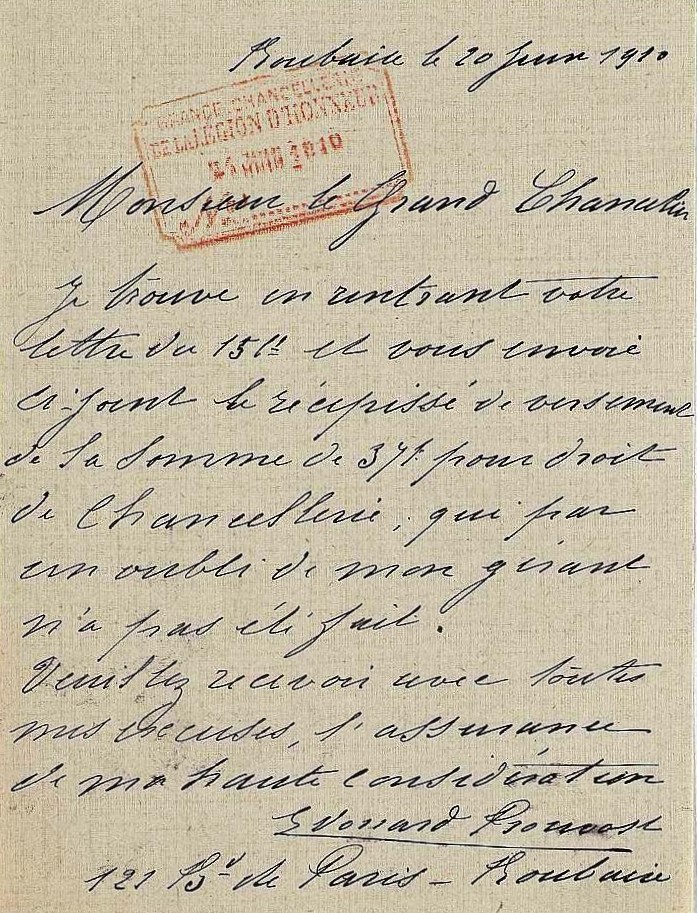 Roubaix le 20 Juin 1910
GRANDE CHANCELLERIE
DE LA LÉGION D'HONNEUR
21 JUIN 1910
Monsieur le Grand Chancelier
Je trouve en rentrant votre
lettre du 15 ct et vous envoie
ci-joint le récépissé de versement
de la somme de 37f pour droit
de Chancellerie, qui par
un oubli de mon gérant
n'a pas été fait.
Veuillez recevoir avec toutes
mes excuses, l'assurance
de ma haute considération
Edouard Prouvost
121 Bd de Paris - Roubaix